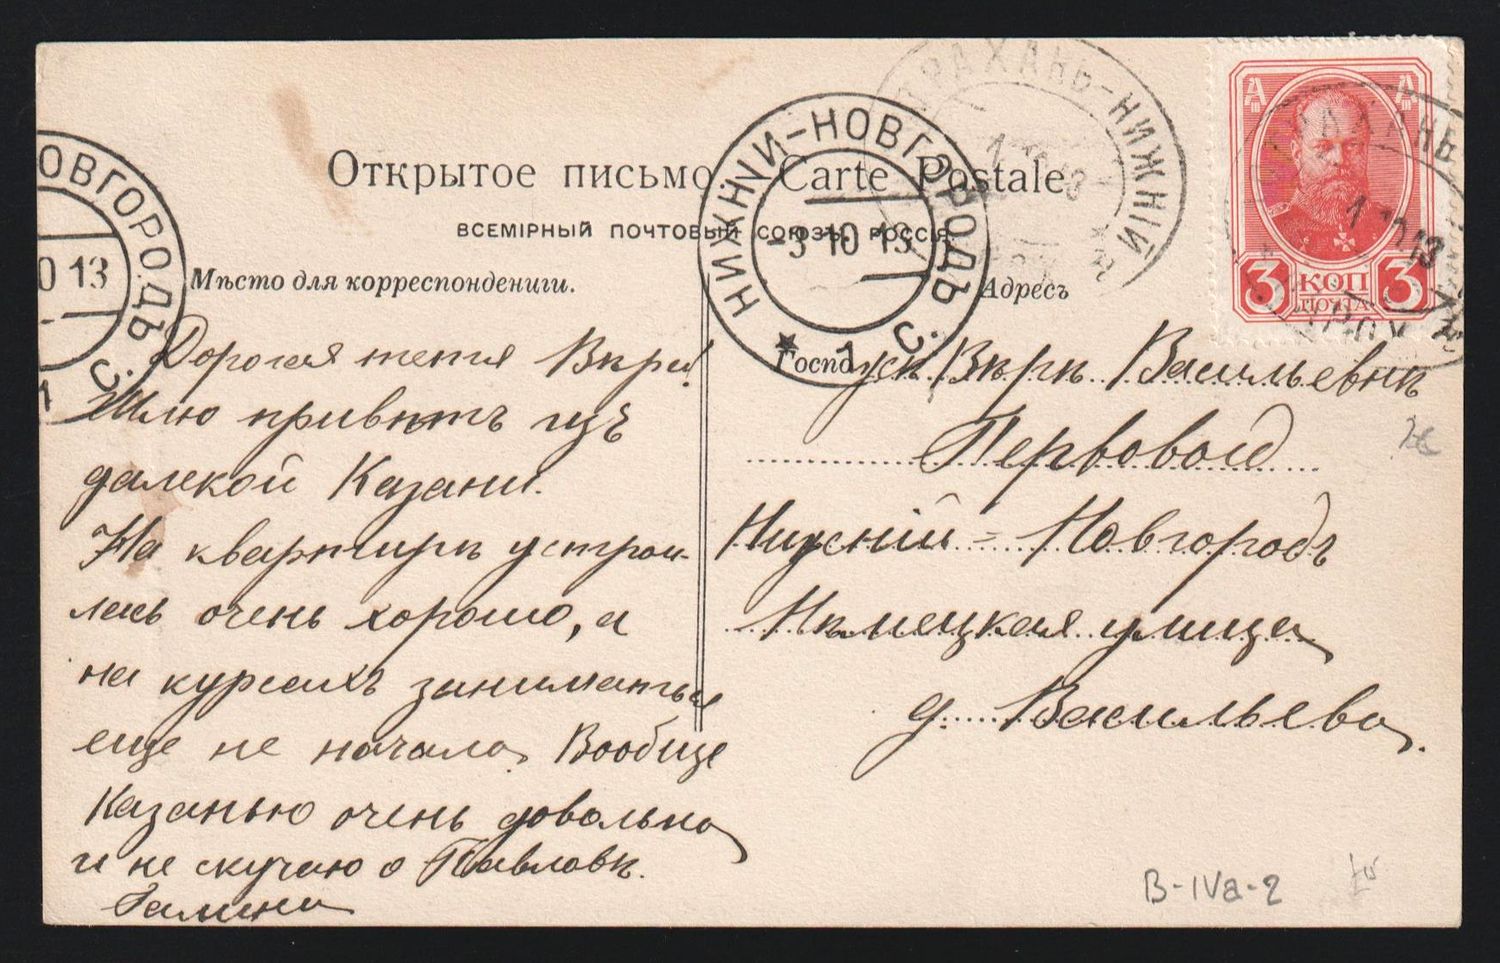 Открытое письмо Carte Postale
ВСЕМІРНЫЙ ПОЧТОВЫЙ СОЮЗЪ. РОССІЯ
Мѣсто для корреспонденціи.
Адресъ
НИЖНИ-НОВГОРОДЪ С.
-3 10 13
1
ОВГОРОДЪ С.
0 13
1
РАХАНЬ-НИЖНІЙ
1 10 13
А А
3 КОП 3
ПОЧТА
РАХАНЬ
1 10 13
Дорогая тетя Вѣра!
Шлю привѣтъ изъ
далекой Казани.
На квартирѣ устрои-
лась очень хорошо, а
на курсахъ заниматься
еще не начала. Вообще
Казанью очень довольна
и не скучаю о Павловѣ.
Галина
Госпожѣ Вѣрѣ Васильевнѣ
Первовой
Нижній-Новгородъ
Нѣмецкая улица
д. Васильева.
B-IVa-2